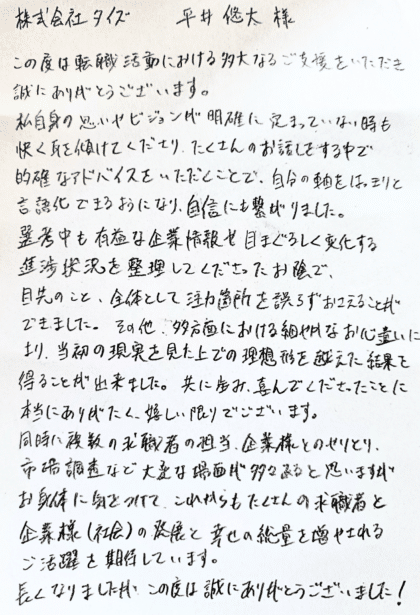 株式会社タイズ　平井 悠太 様
この度は転職活動における多大なるご支援をいただき
誠にありがとうございます。
私自身の思いやビジョンが明確に定まっていない時も
快く耳を傾けてくださり、たくさんのお話しをする中で
的確なアドバイスをいただくことで、自分の軸をはっきりと
言語化できるようになり、自信にも繋がりました。
選考中も有益な企業情報や目まぐるしく変化する
進捗状況を整理してくださったお陰で、
目先のこと、全体として注力箇所を誤らずおさえることが
できました。その他、多方面における細やかなお心遣いに
より、当初の現実を見た上での理想形を越えた結果を
得ることが出来ました。共に歩み、喜んでくださったことに
本当にありがたく、嬉しい限りでございます。
同時に複数の求職者の担当、企業様とのやりとり、
市場調査など大変な場面が多々あると思いますが
お身体に気をつけて、これからもたくさんの求職者と
企業様(社会)の発展と幸せの総量を増やされる
ご活躍を期待しています。
長くなりましたが、この度は誠にありがとうございました!